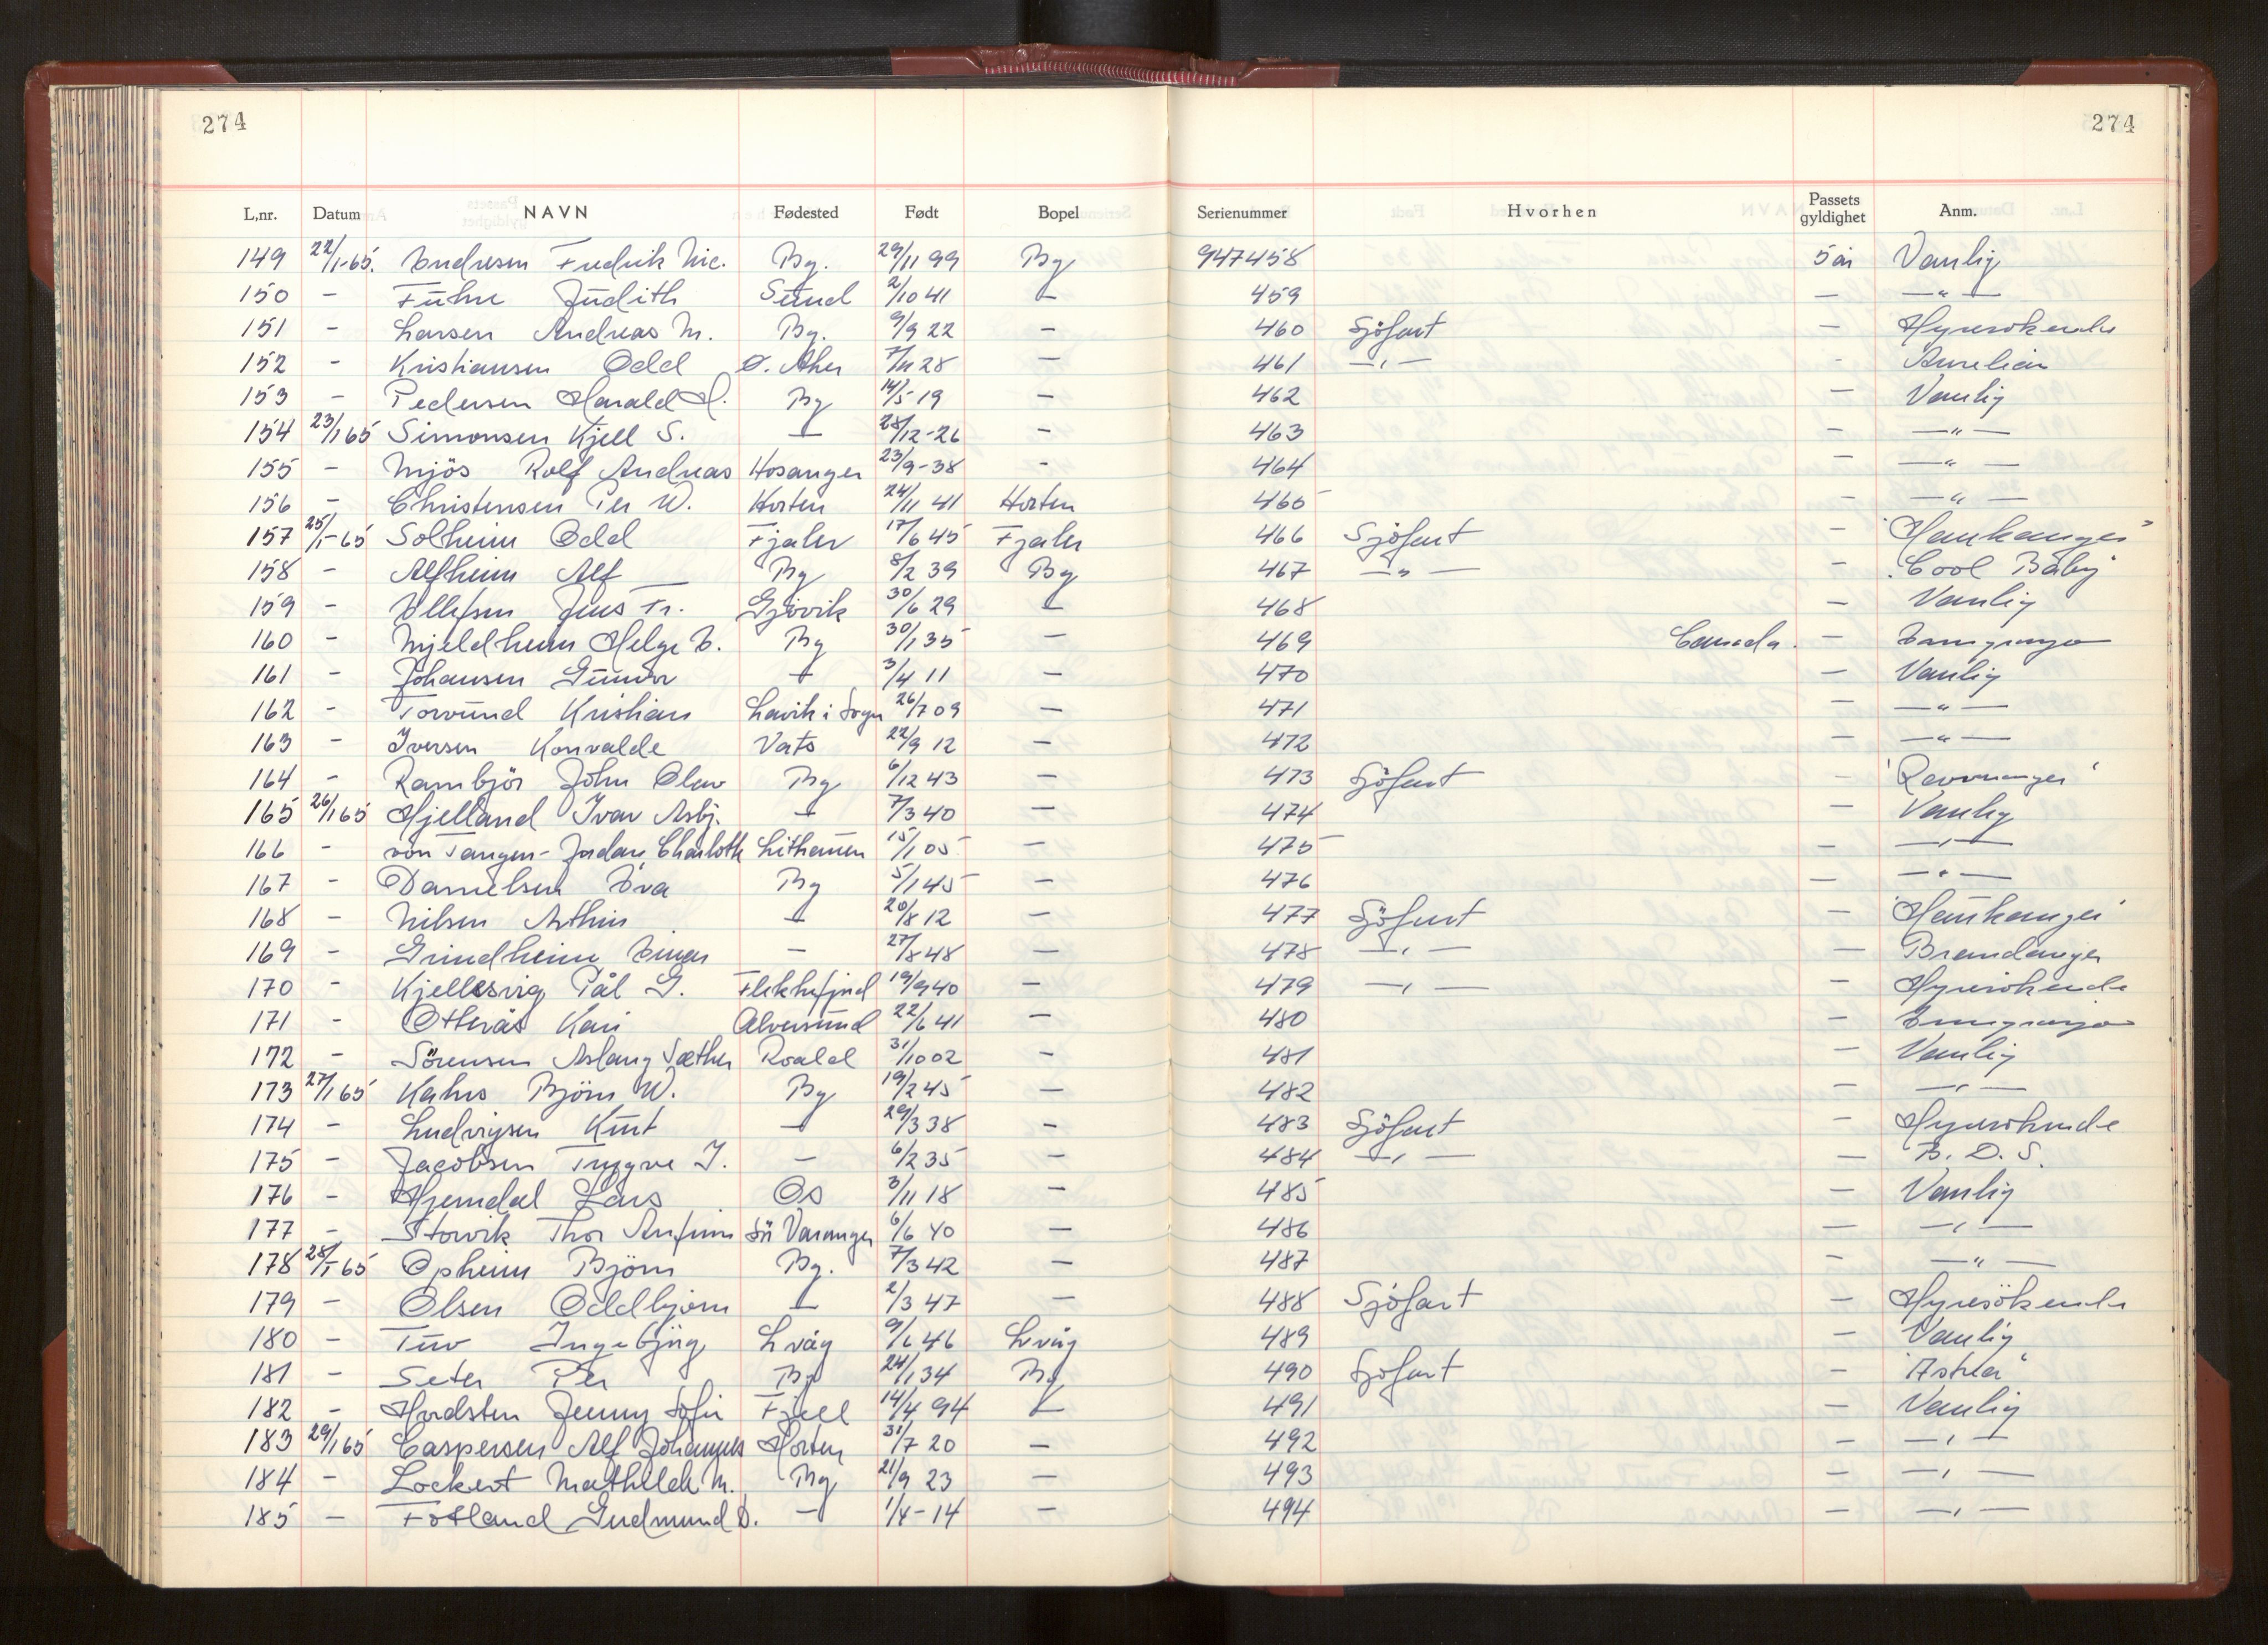 274 274
L,nr. Datum NAVN Fødested Født Bopel Serienummer Hvorhen Passets gyldighet Anm.
149 22/1-65. Andresen Fredrik Nic. Bg. 29/11 99 Bg 947458 5 år Vanlig
150 - Führe Judith Sund 2/10 41 — 459 — —"—
151 - Larsen Andreas M. Bg. 9/9 22 — 460 Sjöfart — Hyresökende
152 - Kristiansen Odd Ø. Aker 7/11 28 — 461 —"— - Aurelian
153 - Pedersen Harald H. Bg 14/5-19 — 462 — Vanlig
154 23/1 65 Simonsen Kjell S. — 28/12-26 - 463 — —"—
155 - Mjös Rolf Andreas Hosanger 23/9-38 - 464 — —"—
156 - Christensen Per W. Horten 24/11 41 Horten 465 — —"—
157 25/1-65 Solheim Odd Fjaler 17/6 45 Fjaler 466 Sjöfart — "Haukanger"
158 - Alfheim Alf Bg 8/2 39 Bg 467 —"— — "Cool Baby"
159 - Ellefsen Jens Fr. Gjövik 30/6 29 — 468 — Vanlig
160 - Mjeldheim Helge E. Bg 30/1 35 — 469 Canada. — Emigrasjon
161 - Johansen Gunvor — 3/4 11 — 470 — Vanlig
162 - Torvund Kristian Lavik i Sogn 26/7 09 — 471 — —"—
163 - Iversen Konvalde Vats 22/9 12 — 472 — —"—
164 - Rambjör John Olav Bg 6/12 43 — 473 Sjöfart — "Ravnanger"
165 26/1 65 Hjelland Ivar Asbj. — 7/3 40 — 474 — Vanlig
166 - von Tangen-Jordan Charlotte Lithauen 15/1 05 — 475 — —"—
167 - Danielsen Eva Bg 5/1 45 — 476 — —"—
168 - Nilsen Arthur — 20/8 12 — 477 Sjöfart — "Haukanger"
169 - Grindheim Einar — 27/8 48 — 478 —"— — Brandanger
170 - Kjellesvig Pål G. Flekkefjord 19/9 40 — 479 —"— — Hyresökende
171 - Otterås Kari Alversund 22/6 41 — 480 — Emigrasjon
172 - Sörensen Aslaug Sæther Roald 31/10 02 - 481 — Vanlig
173 27/1 65 Kahrs Björn W. Bg 19/2 45 — 482 — —"—
174 - Ludvigsen Kurt — 29/3 38 - 483 Sjöfart — Hyresökende
175 - Jacobsen Trygve I. — 6/2 35 - 484 —"— — B. D. S.
176 - Hjemdal Lars Os 3/11 18 - 485 — Vanlig
177 - Storvik Thor Anfinn Sör Varanger 6/6 40 — 486 — —"—
178 28/1-65 Opheim Björn Bg. 7/3 42 — 487 — —"—
179 - Olsen Oddbjörn — 2/3 47 — 488 Sjöfart — Hyresökende
180 - Tuv Ingebjörg L våg 9/6 46 L våg 489 — Vanlig
181 - Seter Per Bg 24/1 34 Bg 490 Sjöfart - "Astrea"
182 - Hordsten Jenny Sofie Fjell 14/4 94 — 491 — Vanlig
183 29/1 65 Caspersen Alf Johannes Horten 31/7 20 — 492 — —"—
184 - Lockert Mathilde M. Bg 21/9 23 — 493 — —"—
185 — Fotland Gudmund D. — 1/4-14 - 494 — —"—